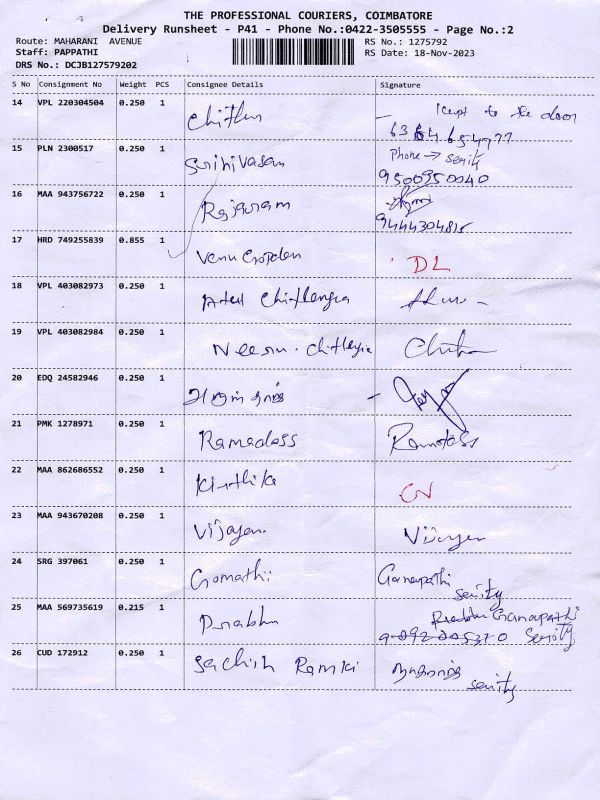 THE PROFESSIONAL COURIERS, COIMBATORE
Delivery Runsheet - P41 - Phone No.:0422-3505555 - Page No.:2
Route: MAHARANI AVENUE RS No.: 1275792
Staff: PAPPATHI RS Date: 18-Nov-2023
DRS No.: DCJB127579202
S No Consignment No Weight PCS Consignee Details Signature
14 VPL 220304504 0.250 1 Chithu - kept to the door
15 PLN 2300517 0.250 1 Srinivasan Phone → serity
9500950040
16 MAA 943756722 0.250 1 Rajaram
9444304815
17 HRD 749255839 0.855 1 Venu Gopalan DL
18 VPL 403082973 0.250 1 Atul Chitlangia
19 VPL 403082984 0.250 1 Neeru. Chitlangia
20 EDQ 24582946 0.250 1
21 PMK 1278971 0.250 1 Ramadass Ramdass
22 MAA 862686552 0.250 1 Kirthika CN
23 MAA 943670208 0.250 1 Vijayan Vijayan
24 SRG 397061 0.250 1 Gomathi Ganapathi
serity
25 MAA 569735619 0.215 1 Prabhu Prabhu Ganapathi
Serity
26 CUD 172912 0.250 1 Sachin Ramki
serity